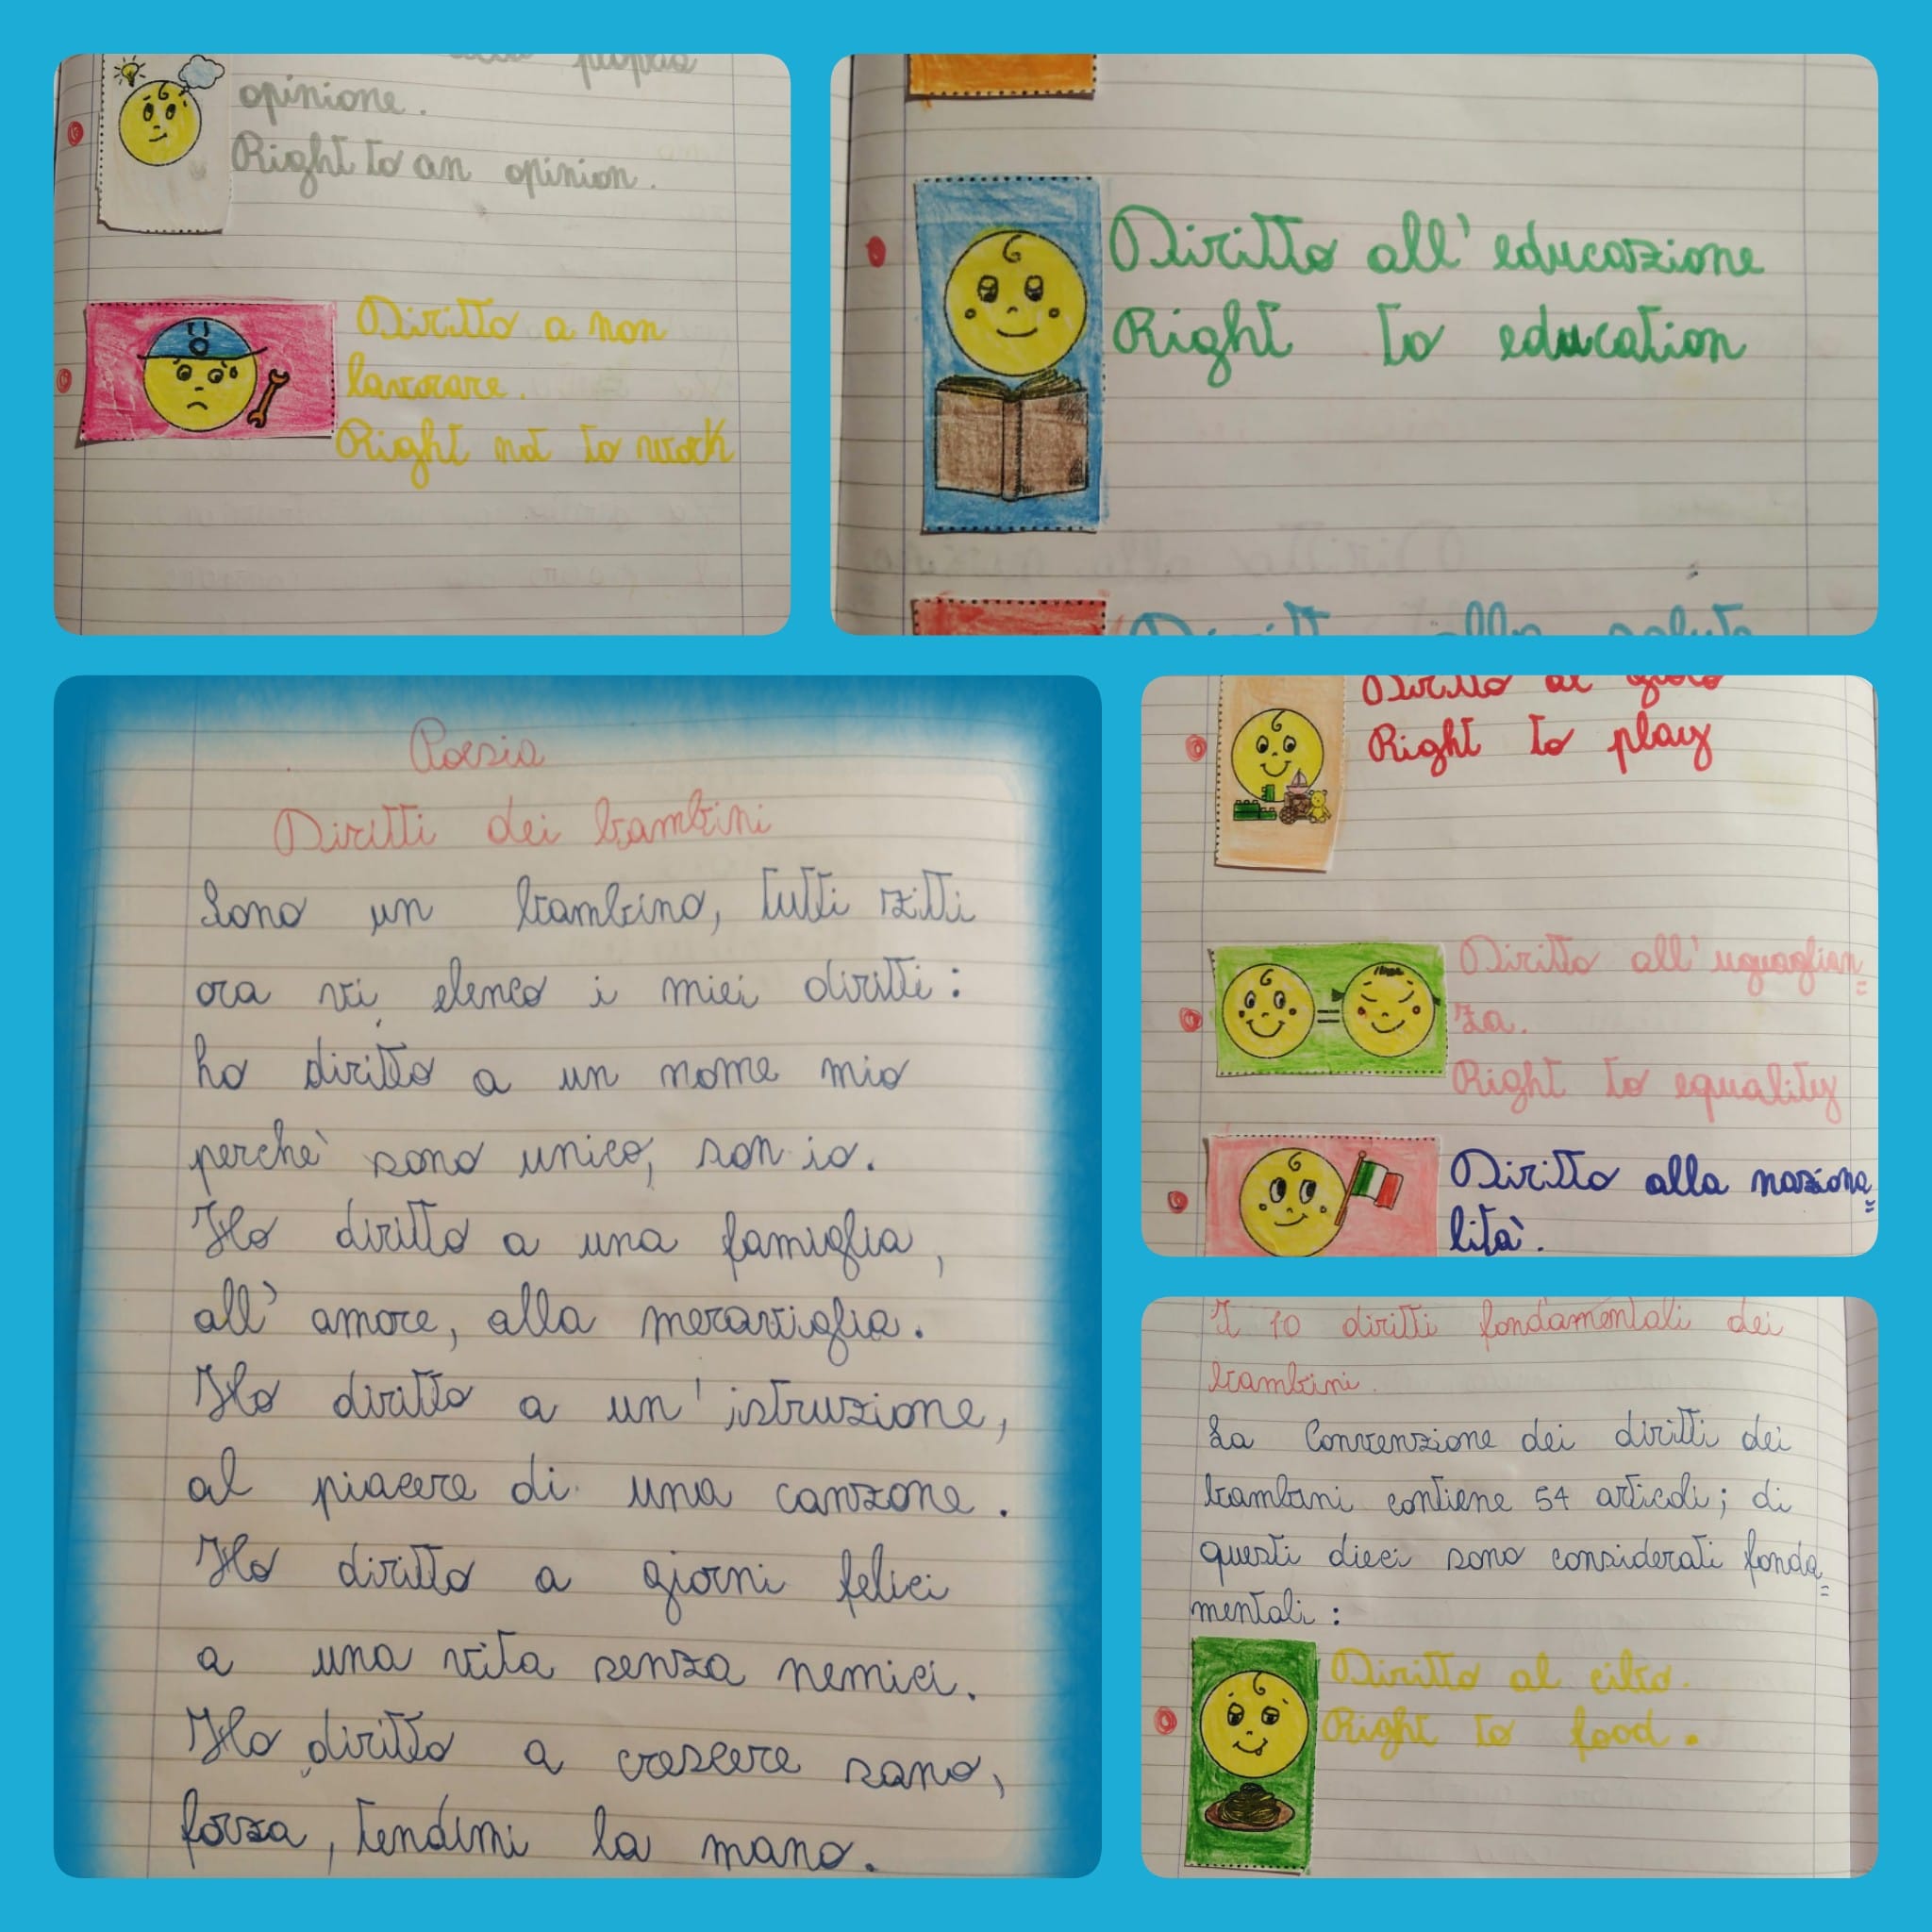 propria
opinione.
Right to an opinion.
Diritto a non
lavorare.
Right not to work
Diritto all'educazione
Right to education
Diritto alla salute
Poesia
Diritti dei bambini
Sono un bambino, tutti zitti
ora vi elenco i miei diritti:
ho diritto a un nome mio
perchè sono unico, son io.
Ho diritto a una famiglia,
all' amore, alla meraviglia.
Ho diritto a un' istruzione,
al piacere di una canzone.
Ho diritto a giorni felici
a una vita senza nemici.
Ho diritto a crescere sano,
forza, tendimi la mano.
Diritto al gioco
Right to play
Diritto all'uguaglian=
za.
Right to equality
Diritto alla naziona=
lità.
I 10 diritti fondamentali dei
bambini.
La Convenzione dei diritti dei
bambini contiene 54 articoli; di
questi dieci sono considerati fonda=
mentali:
Diritto al cibo.
Right to food.